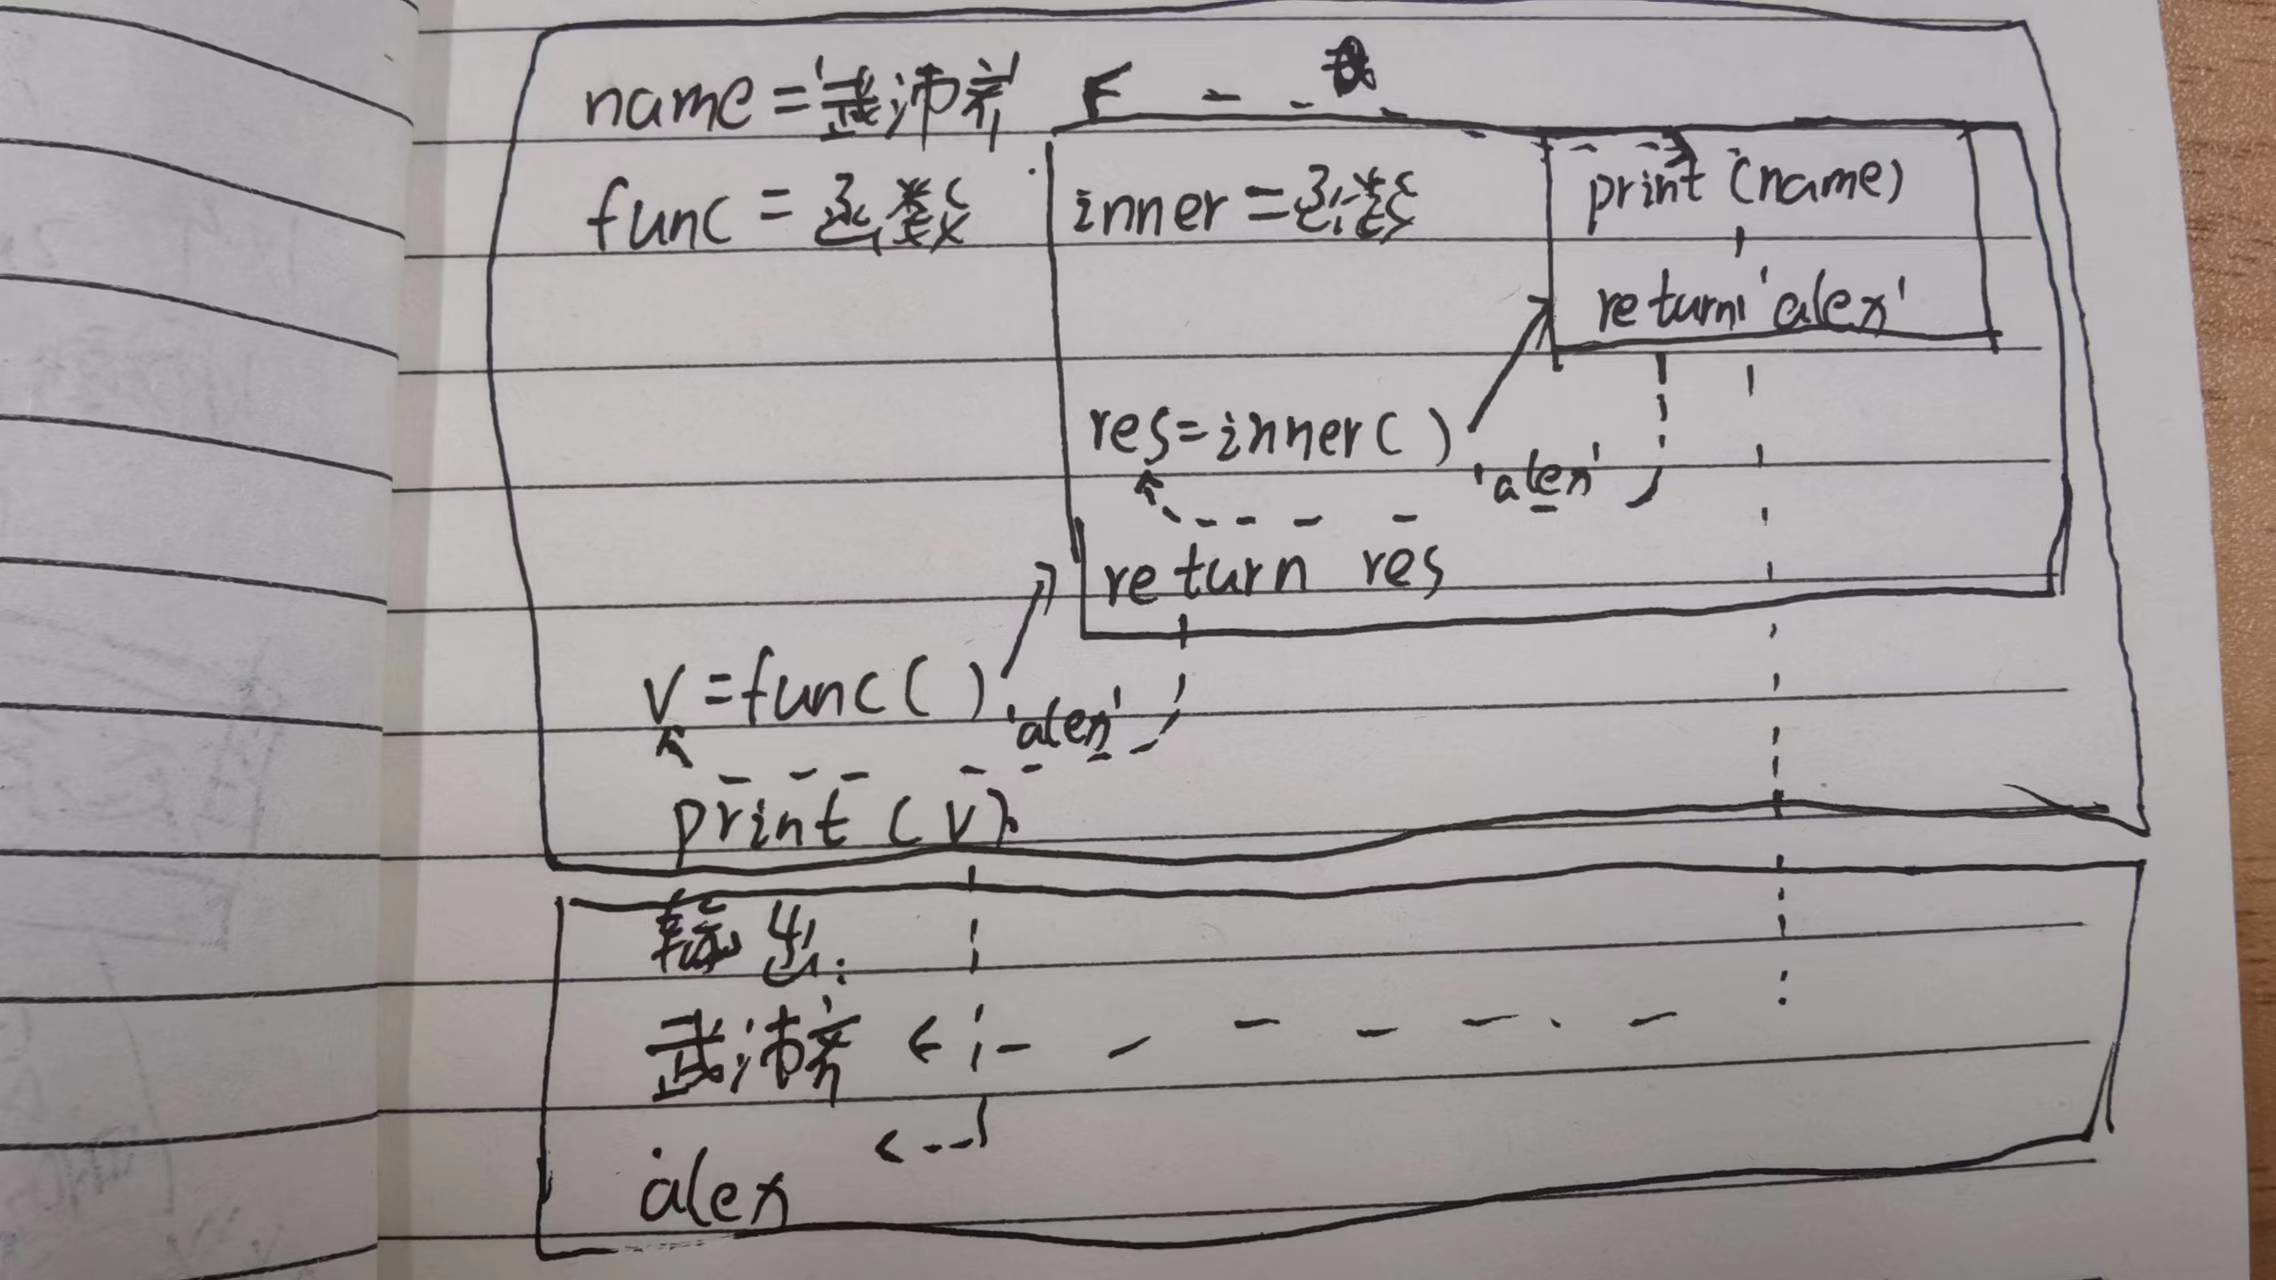 name='武沛齐'
func=函数
inner=函数
print(name)
return 'alex'
res=inner()
'alex'
return res
v=func()
'alex'
print(v)
输出:
武沛齐
alex